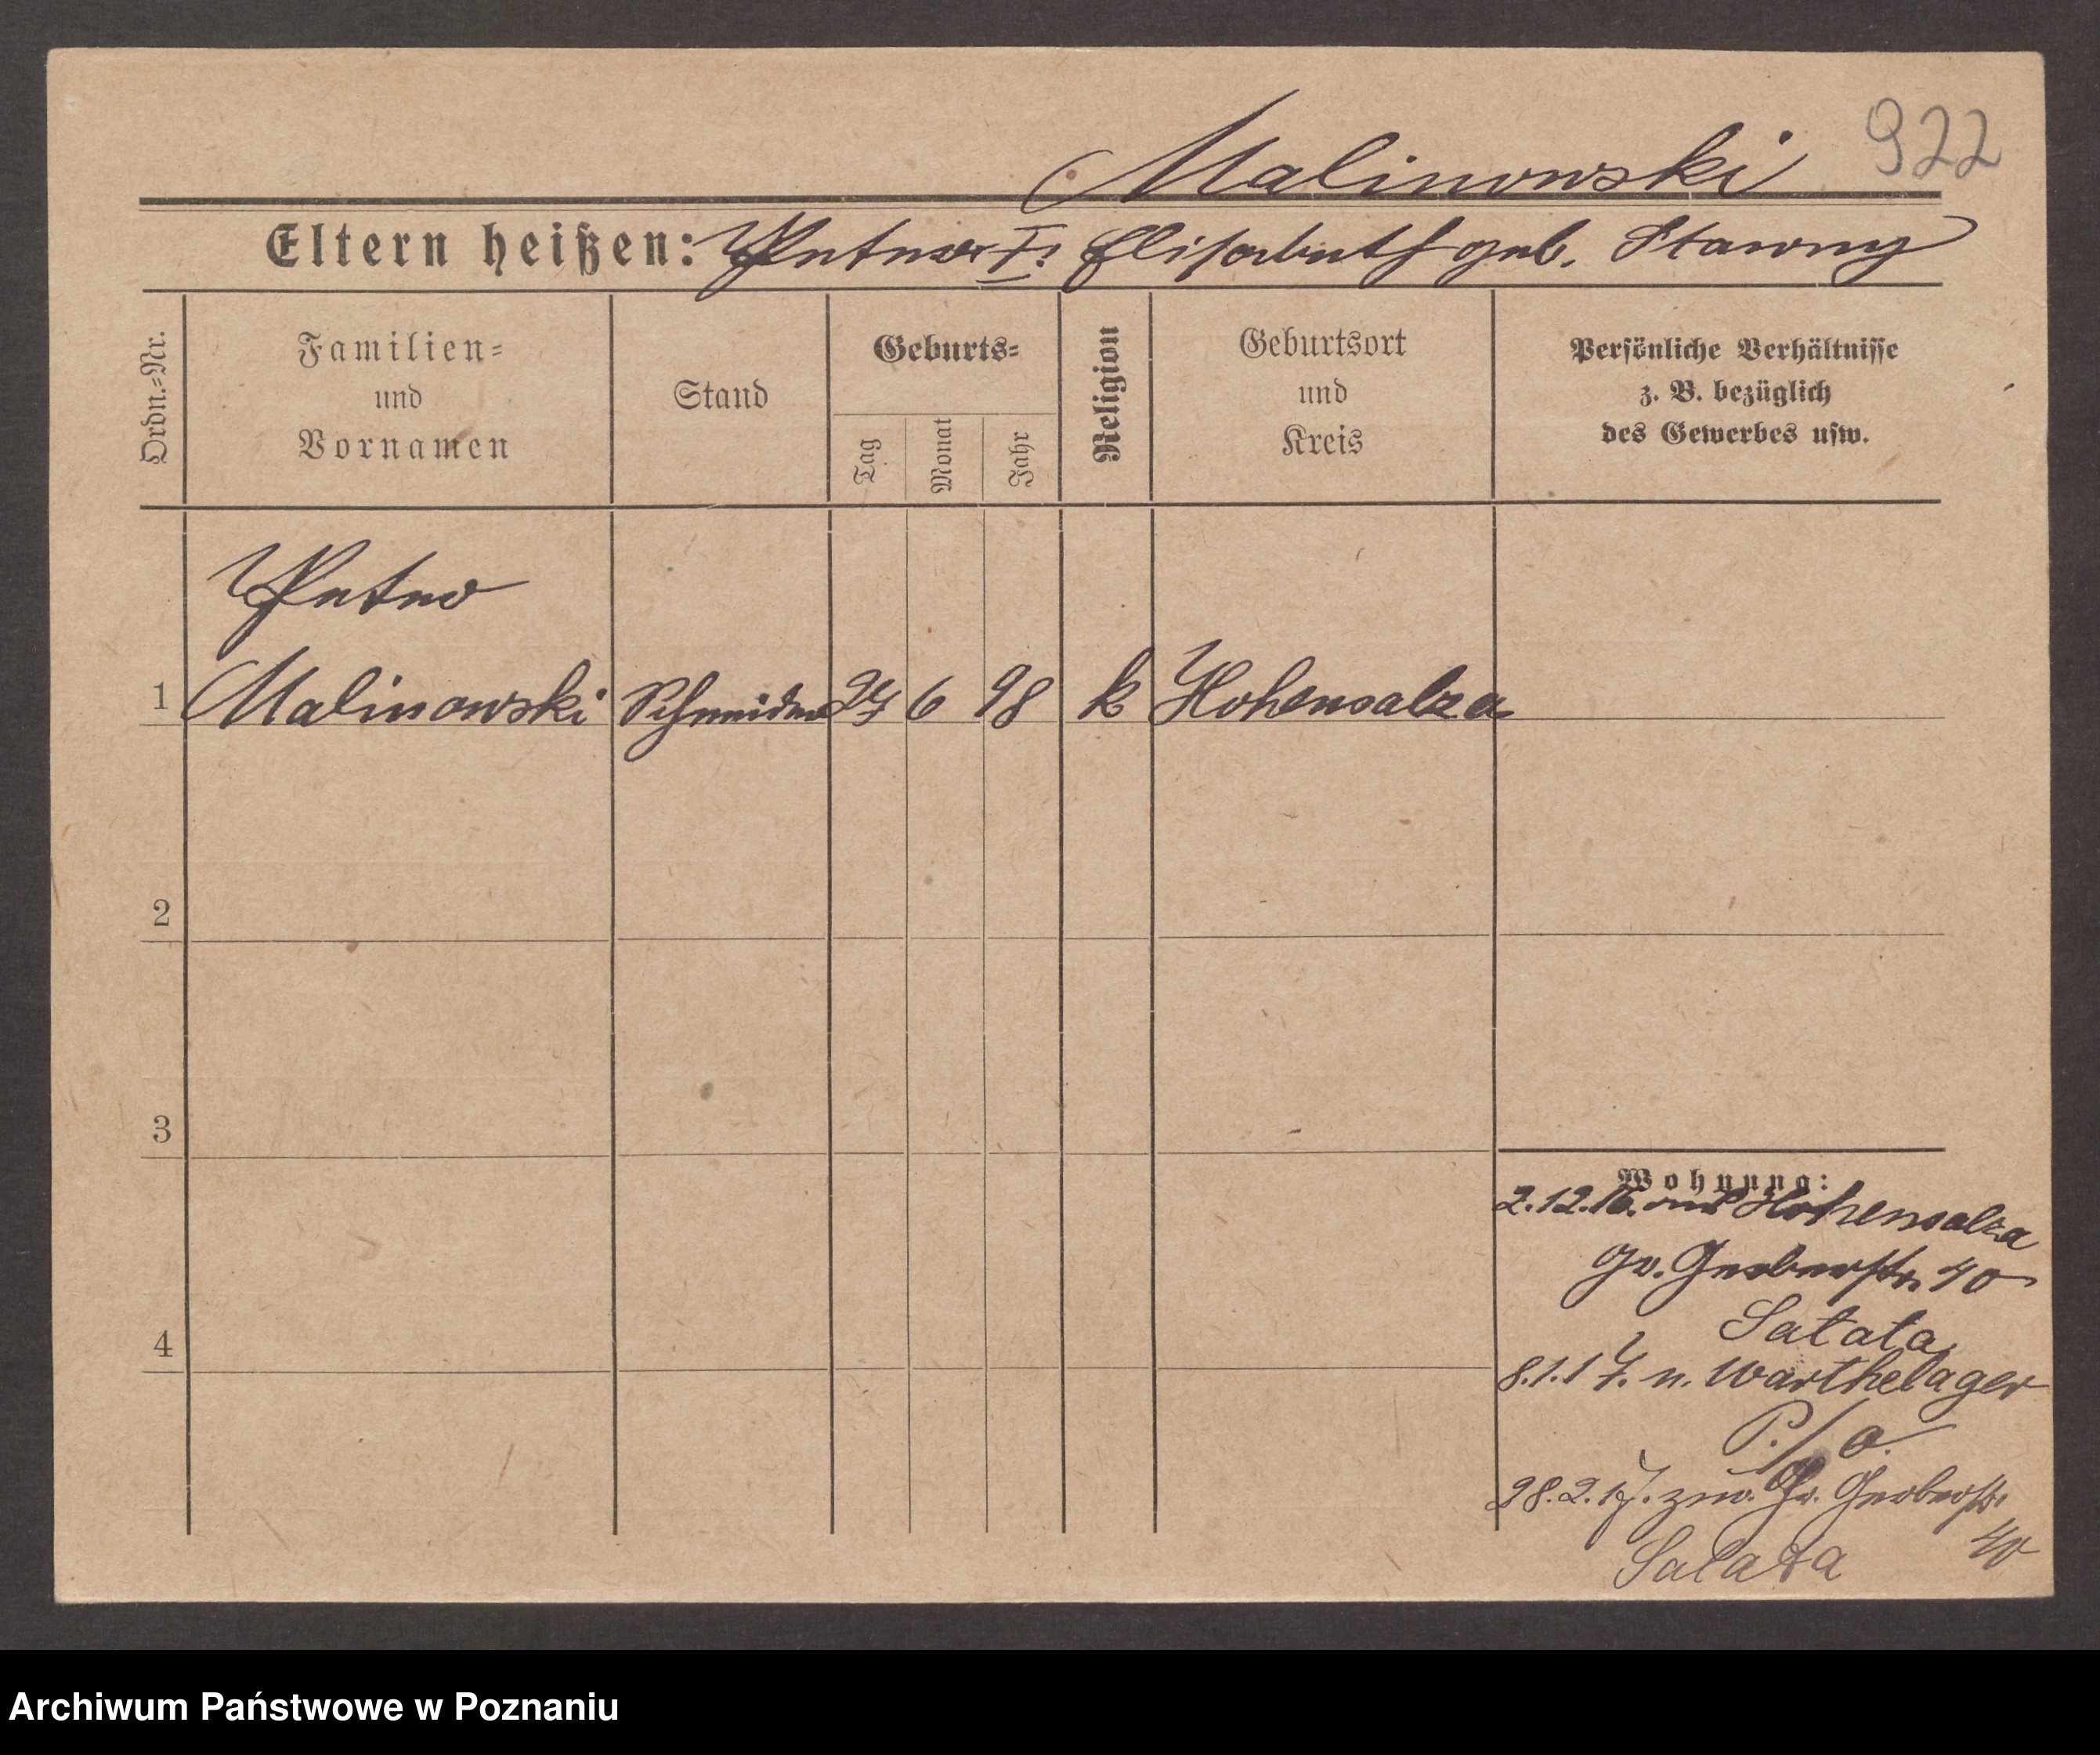 922
Malinowski
Eltern heißen: Peter I. Elisabeth geb. Stawny
Ordn.-Nr.
Familien-
und
Vornamen
Stand
Geburts-
Tag
Monat
Jahr
Religion
Geburtsort
und
Kreis
Persönliche Verhältnisse
z. B. bezüglich
des Gewerbes usw.
Peter
1 Malinowski Schneider 27 6 98 k Hohensalza
2
3
4
Wohnung:
2.12.16. aus Hohensalza
Gr. Gerberstr. 40
Satata
8.1.17. n. Warthelager
P./O.
28.2.17. zur. Gr. Gerberstr.
40
Salata
Archiwum Państwowe w Poznaniu